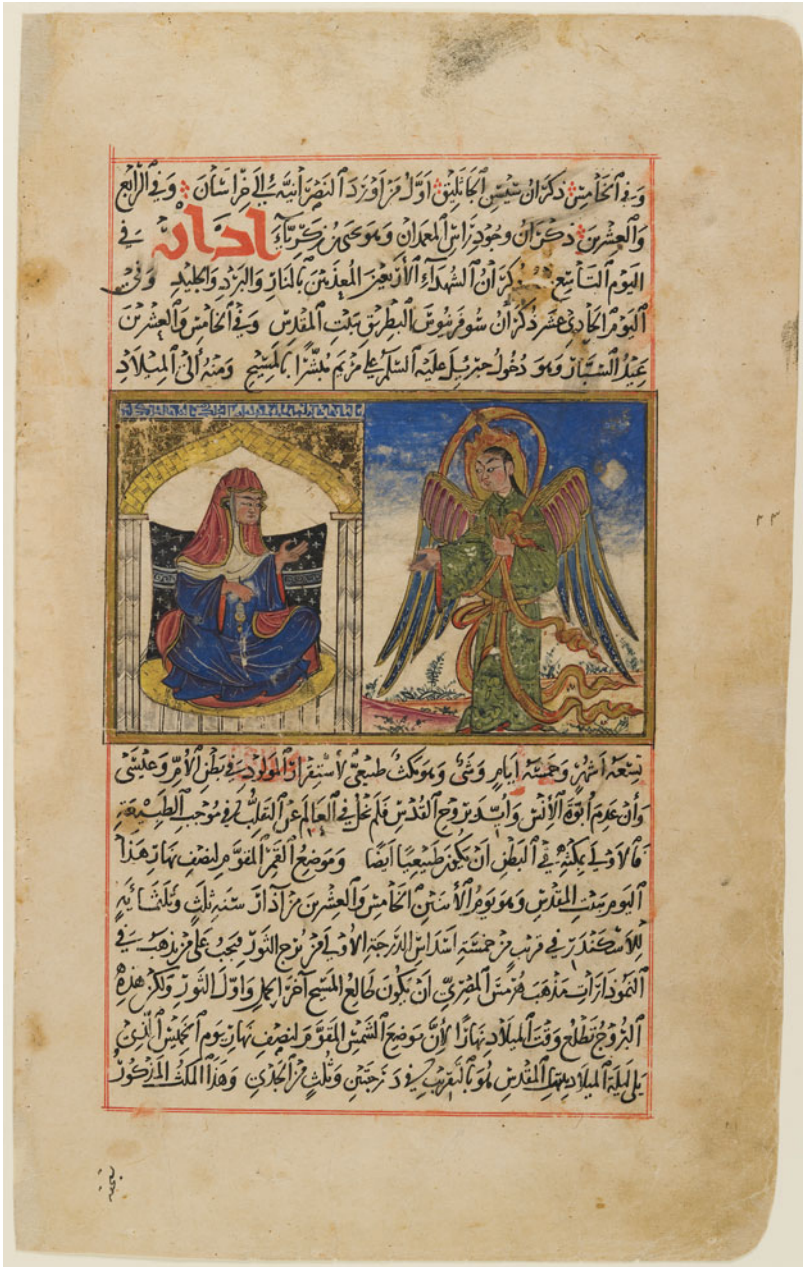 وفي الخامس ذكران سيس الجاثليق اوّل من اورد النصرانية الى خراسان وفي الرابع
والعشرين ذكران وجود راس المعمدان وهو يحيى بن زكرياء اذار في
اليوم التاسع ذكران الشهداء الاربعين المعذبين بالنار والبرد والجليد وفي
اليوم الحادي عشر ذكران سوفرنيوس البطريق ببيت المقدس وفي الخامس والعشرين
عيد السبار وهو دخول جبرئيل عليه السلم على مريم مبشرا بالمسيح ومنه الى الميلاد
تسعة اشهر وخمسة ايام وشئ وهو مكث طبيعي لاستقرار المولود في بطن الام وعيسى
وان عدم ابوة الانس وايد بروح القدس فلم يخل في العالم عن التقلب في موجب الطبيعة
فالاولى بمكثه في البطن ان يكون طبيعيا ايضا وموضع القمر المقوم لنصف نهار هذا
اليوم ببيت المقدس وهو يوم الاثنين الخامس والعشرين من اذار سنة ثلث وثلثمائة
للاسكندر في قريب من خمسة اسداس الدرجة الاولى من برج الثور فيجب على من يذهب في
النمودارات مذهب هرمس المصري ان يكون طالع المسيح آخر الحمل واول الثور ولكن هذه
البروج تطلع وقت الميلاد نهارا لان موضع الشمس المقوم لنصف نهار يوم الخميس الذي
يلي ليلة الميلاد ببيت المقدس هو بالتقريب في درجتين وثلث من الجدي وهذا المكث المذكور
٣٣